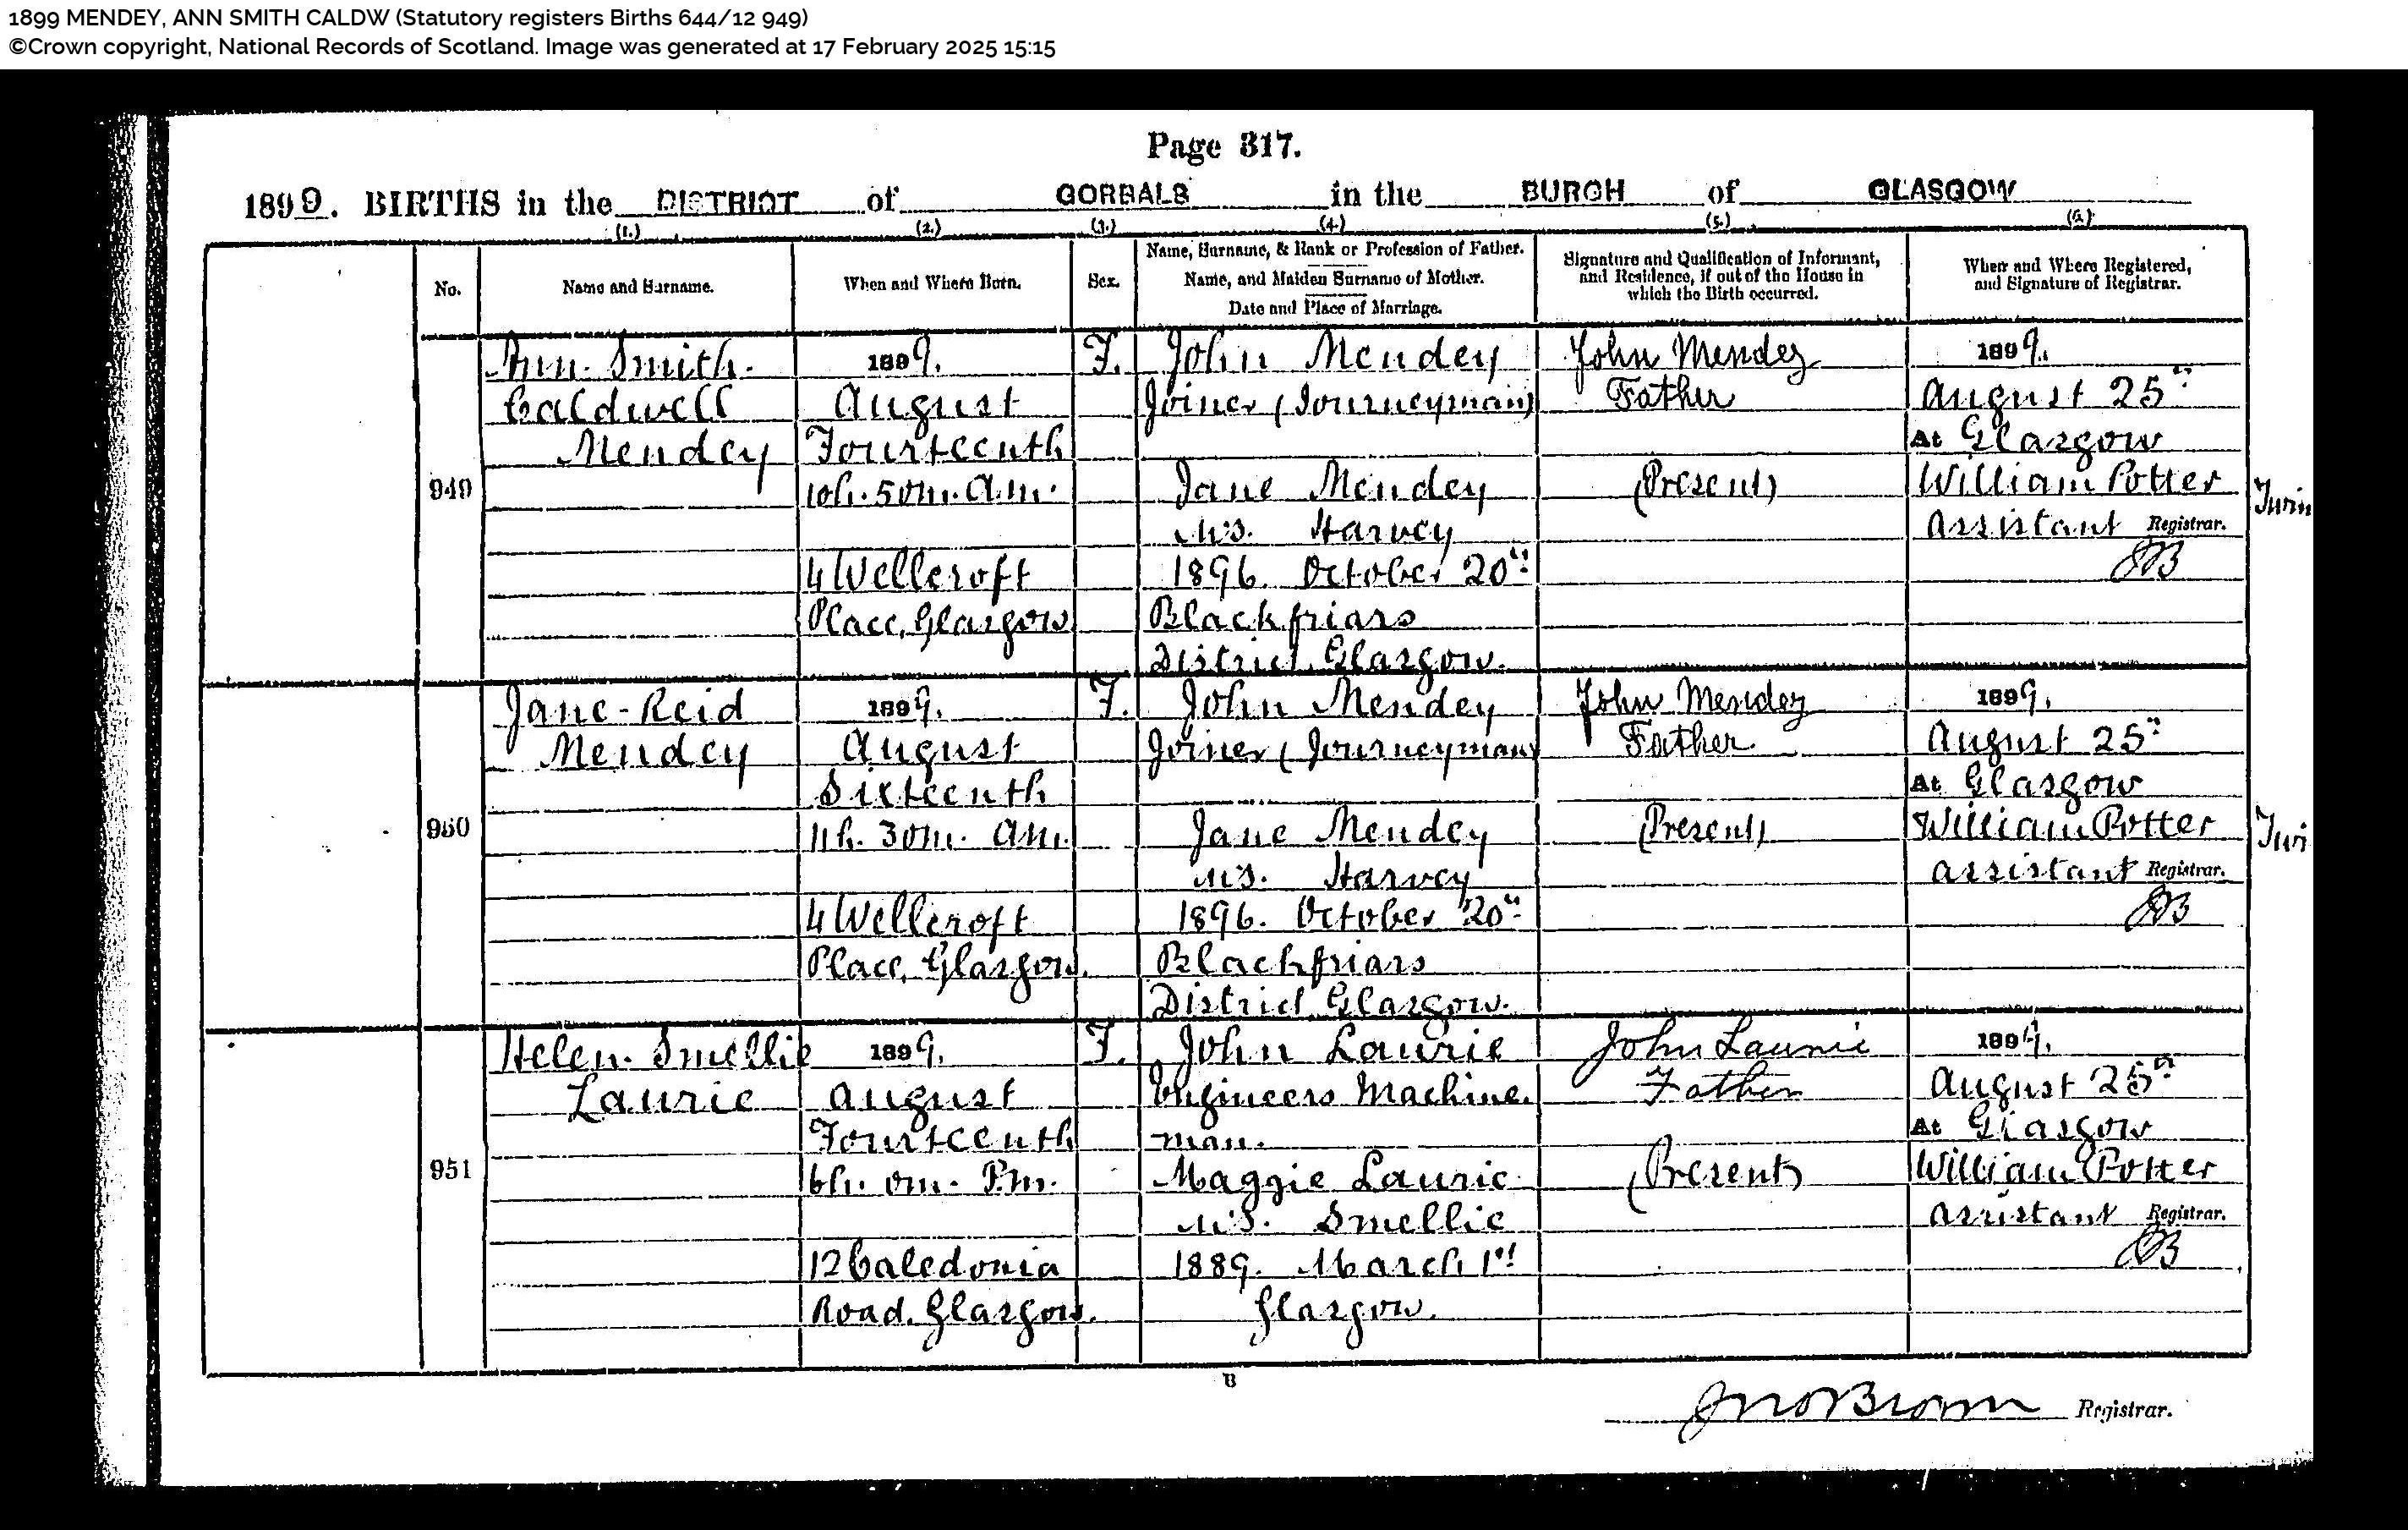 1899 MENDEY, ANN SMITH CALDW (Statutory registers Births 644/12 949)
©Crown copyright, National Records of Scotland. Image was generated at 17 February 2025 15:15
Page 317.
1899. BIRTHS in the DISTRICT of GORBALS in the BURGH of GLASGOW
(1.) (2.) (3.) (4.) (5.) (6.)
No.
Name and Surname.
When and Where Born.
Sex.
Name, Surname, & Rank or Profession of Father.
Name, and Maiden Surname of Mother.
Date and Place of Marriage.
Signature and Qualification of Informant,
and Residence, if out of the House in
which the Birth occurred.
When and Where Registered,
and Signature of Registrar.
949
Ann Smith
Caldwell
Mendey
1899.
August
Fourteenth
10h. 50m. A.M.
4 Wellcroft
Place, Glasgow
F.
John Mendey
Joiner (Journeyman)
Jane Mendey
M.S. Harvey
1896. October 20th
Blackfriars
District Glasgow.
John Mendey
Father
(Present)
1899.
August 25th
At Glasgow
William Potter
Assistant Registrar.
JB
Twin
950
Jane Reid
Mendey
1899.
August
Sixteenth
11h. 30m. A.M.
4 Wellcroft
Place, Glasgow.
F.
John Mendey
Joiner (Journeyman)
Jane Mendey
M.S. Harvey
1896. October 20th
Blackfriars
District Glasgow.
John Mendey
Father
(Present)
1899.
August 25th
At Glasgow
William Potter
Assistant Registrar.
JB
Twi
951
Helen Smellie
Laurie
1899.
August
Fourteenth
6h. 0m. P.M.
12 Caledonia
Road, Glasgow.
F.
John Laurie
Engineers Machine
man.
Maggie Laurie
M.S. Smellie
1889. March 1st
Glasgow.
John Laurie
Father
(Present)
1899.
August 25th
At Glasgow
William Potter
Assistant Registrar.
JB
B
Jno Brown Registrar.